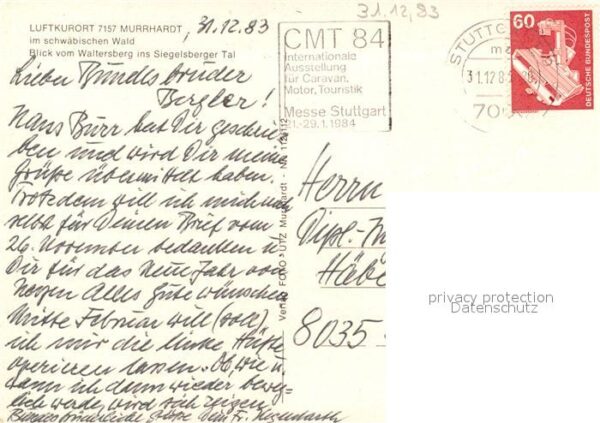 LUFTKURORT 7157 MURRHARDT
im schwäbischen Wald
Blick vom Waltersberg ins Siegelsberger Tal
31.12.83
31.12.83
Lieber Bundesbruder
Bergler!
Hans Burr hat Dir geschrie-
ben und wird Dir meine
Grüße übermittelt haben.
Trotzdem will ich mich nun
selbst für Deinen Brief vom
26. November bedanken u.
Dir für das Neue Jahr von
Herzen Alles Gute wünschen
Mitte Februar will (soll)
ich mir die linke Hüfte
operieren lassen. Ob, wie u.
wann ich dann wieder beweg-
lich werde, wird sich zeigen
Bundesbrüderliche Grüße Dein Fr.
CMT 84
Internationale
Ausstellung
für Caravan,
Motor, Touristik
Messe Stuttgart
21.-29.1.1984
STUTTG
31.12.8
700
60
DEUTSCHE BUNDESPOST
Verlag FOTO UTZ Murrhardt - Nr.
Herrn
Dipl.-
Häbe
8035
privacy protection
Datenschutz